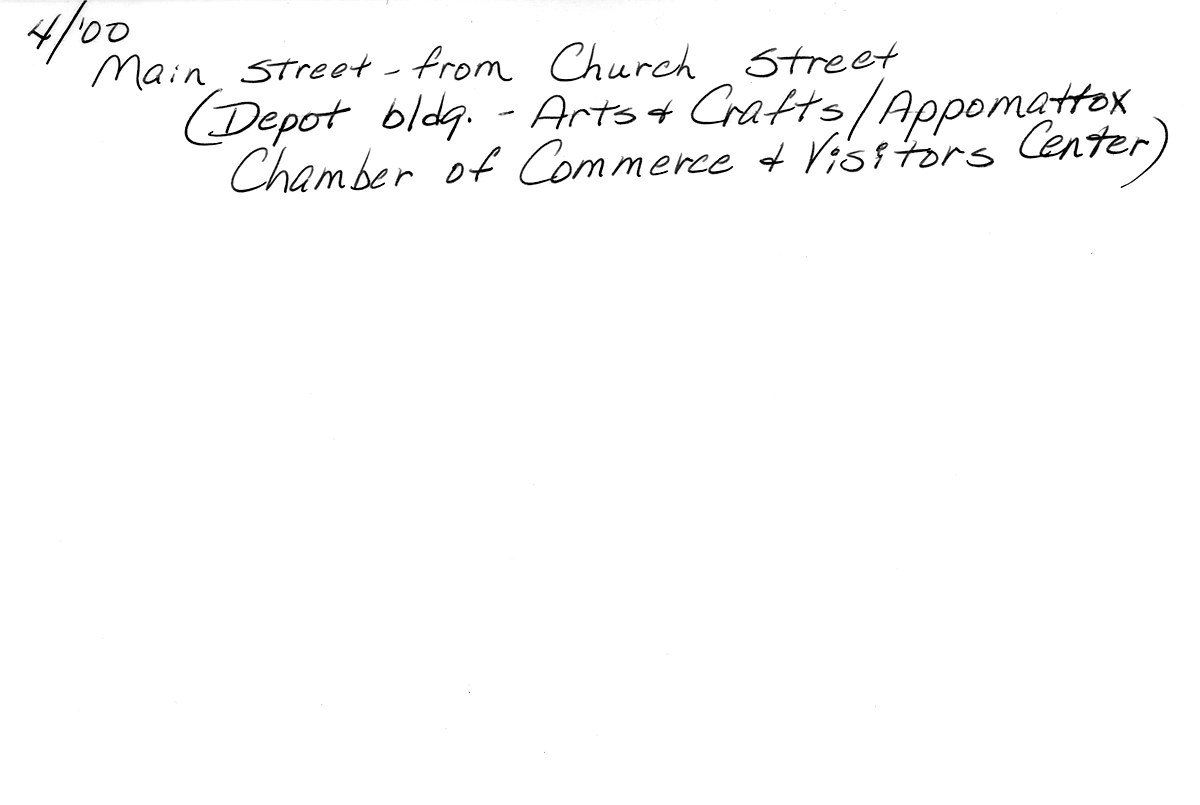 4/'00
Main Street - from Church Street
(Depot bldg. - Arts & Crafts / Appomattox
Chamber of Commerce & Visitors Center)